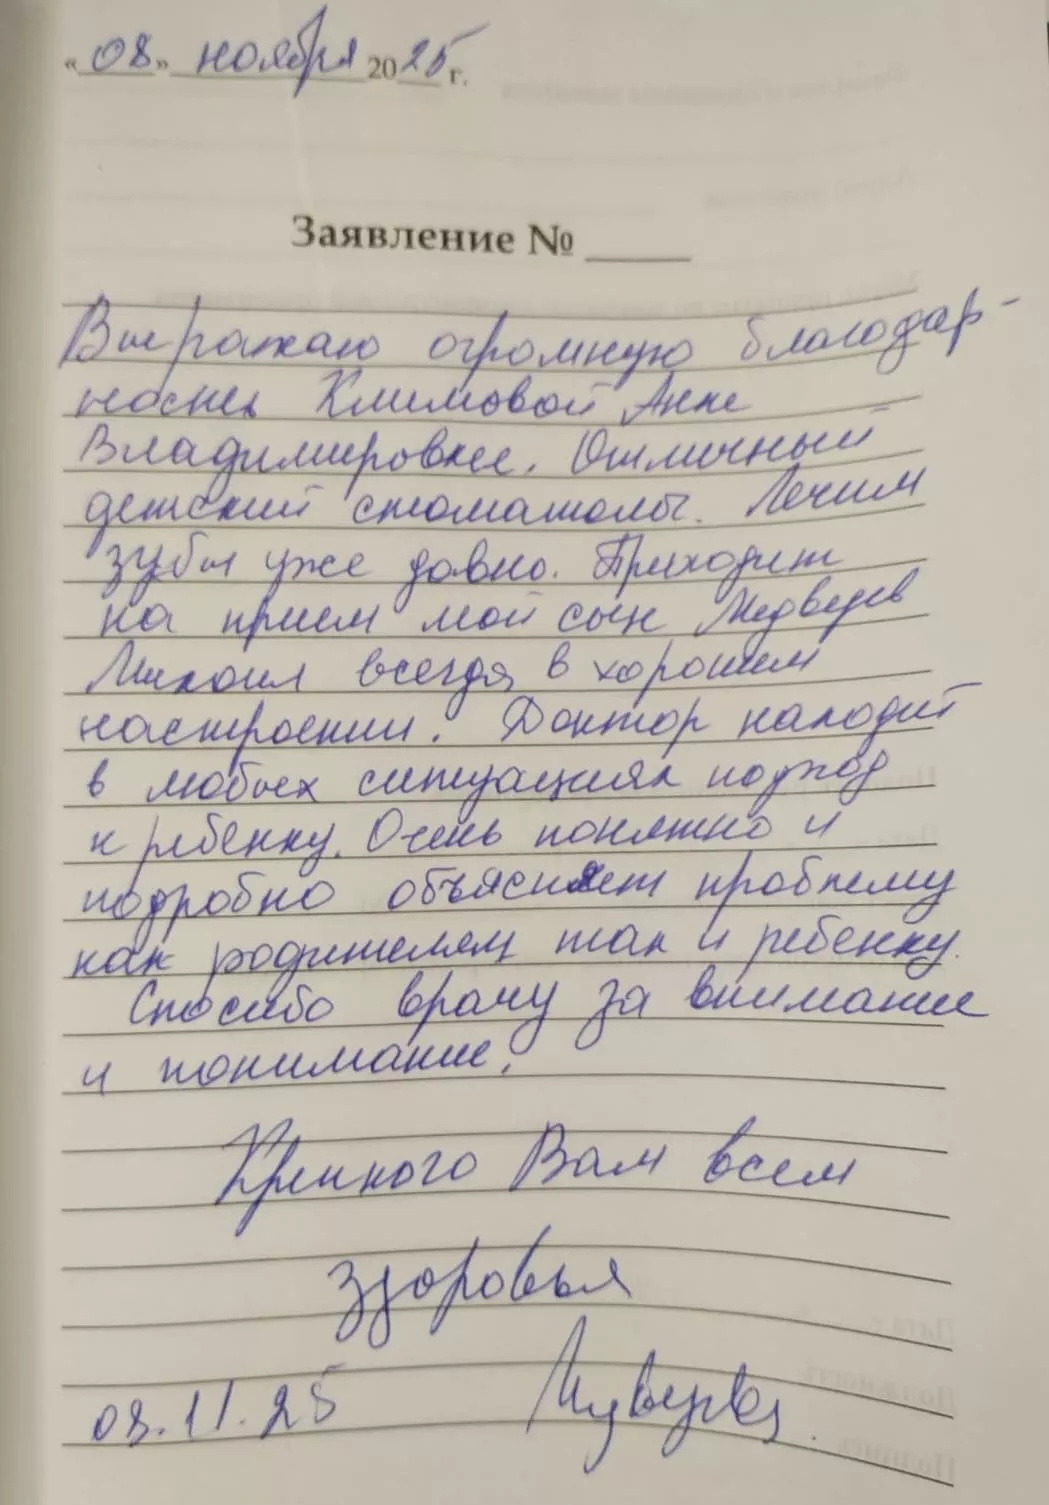 «08» ноября 2025 г.
Заявление № ____
Выражаю огромную благодар-
ность Климовой Анне
Владимировне. Отличный
детский стоматолог. Лечим
зубы уже давно. Приходит
на прием мой сын Медведев
Михаил всегда в хорошем
настроении. Доктор находит
в любых ситуациях подход
к ребенку. Очень понятно и
подробно объясняет проблему
как родителям так и ребенку.
Спасибо врачу за внимание
и понимание.
Крепкого Вам всем
здоровья
08.11.25 Медведева